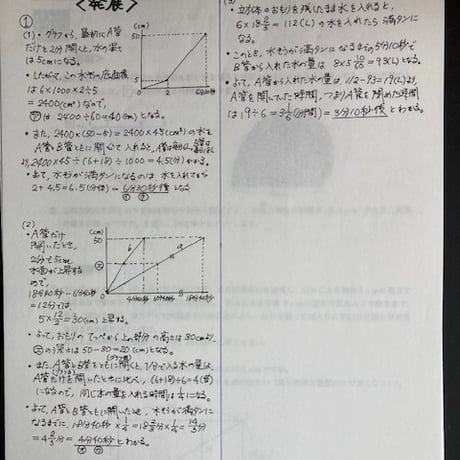 <発展>
①
(1)・グラフから、最初にA管
だけを2分開くと、水の深さ
は5cmになる。
・したがって、この水そうの底面積
は 6×1000×2÷5
=2400(cm²)なので、
㋐は 2400÷60=40(cm)となる。
(cm)
50
5
0
2
・また、2400×(50-5)=2400×45(cm³)の水を
A管とB管をともに開いて入れると、
2400×45÷(6+18)÷1000=4.5(分)かかる。
・よって、水そうが満タンになるのは、水を入れてから
2+4.5=6.5(分後)=6分30秒後となる
(2)
・A管だけ
開いたとき、
2分で5cm
水面が上昇する
ので、
18分40秒-6分40秒
=12分では
5×12/2=30(cm)上昇する。
(cm)
50
0
b
a
18分40秒
・よって、おもりのてっぺんから上の部分の高さは30cmより、
の高さは50-30=20(cm)となる。
・また、A管とB管をともに開くと、1分で入る水の量は、
A管だけを開いたときに比べ、(6+18)÷6=4(倍)
になるので、同じ水の量を入れる時間は1/4になる。
・よって、A管とB管をともに開いた時、水そうが満タンに
なるまでに、18分40秒×1/4=18 2/3分×1/4=14/3分
=4 2/3分=4分40秒とわかる。
(3)
・立方体のおもりを残したまま水を入れると、
6×18 2/3=112(L)の水を入れたら満タンに
なる。
・このとき、水そうが満タンになるまでの5分10秒で
B管から入れた水の量は 18×5 10/60=93(L)となる。
・よって、A管から入れた水の量は112-93=19(L)より、
A管を開いていた時間、つまりA管を閉めた時間
は19÷6=3 1/6(分間)=3分10秒後とわかる。